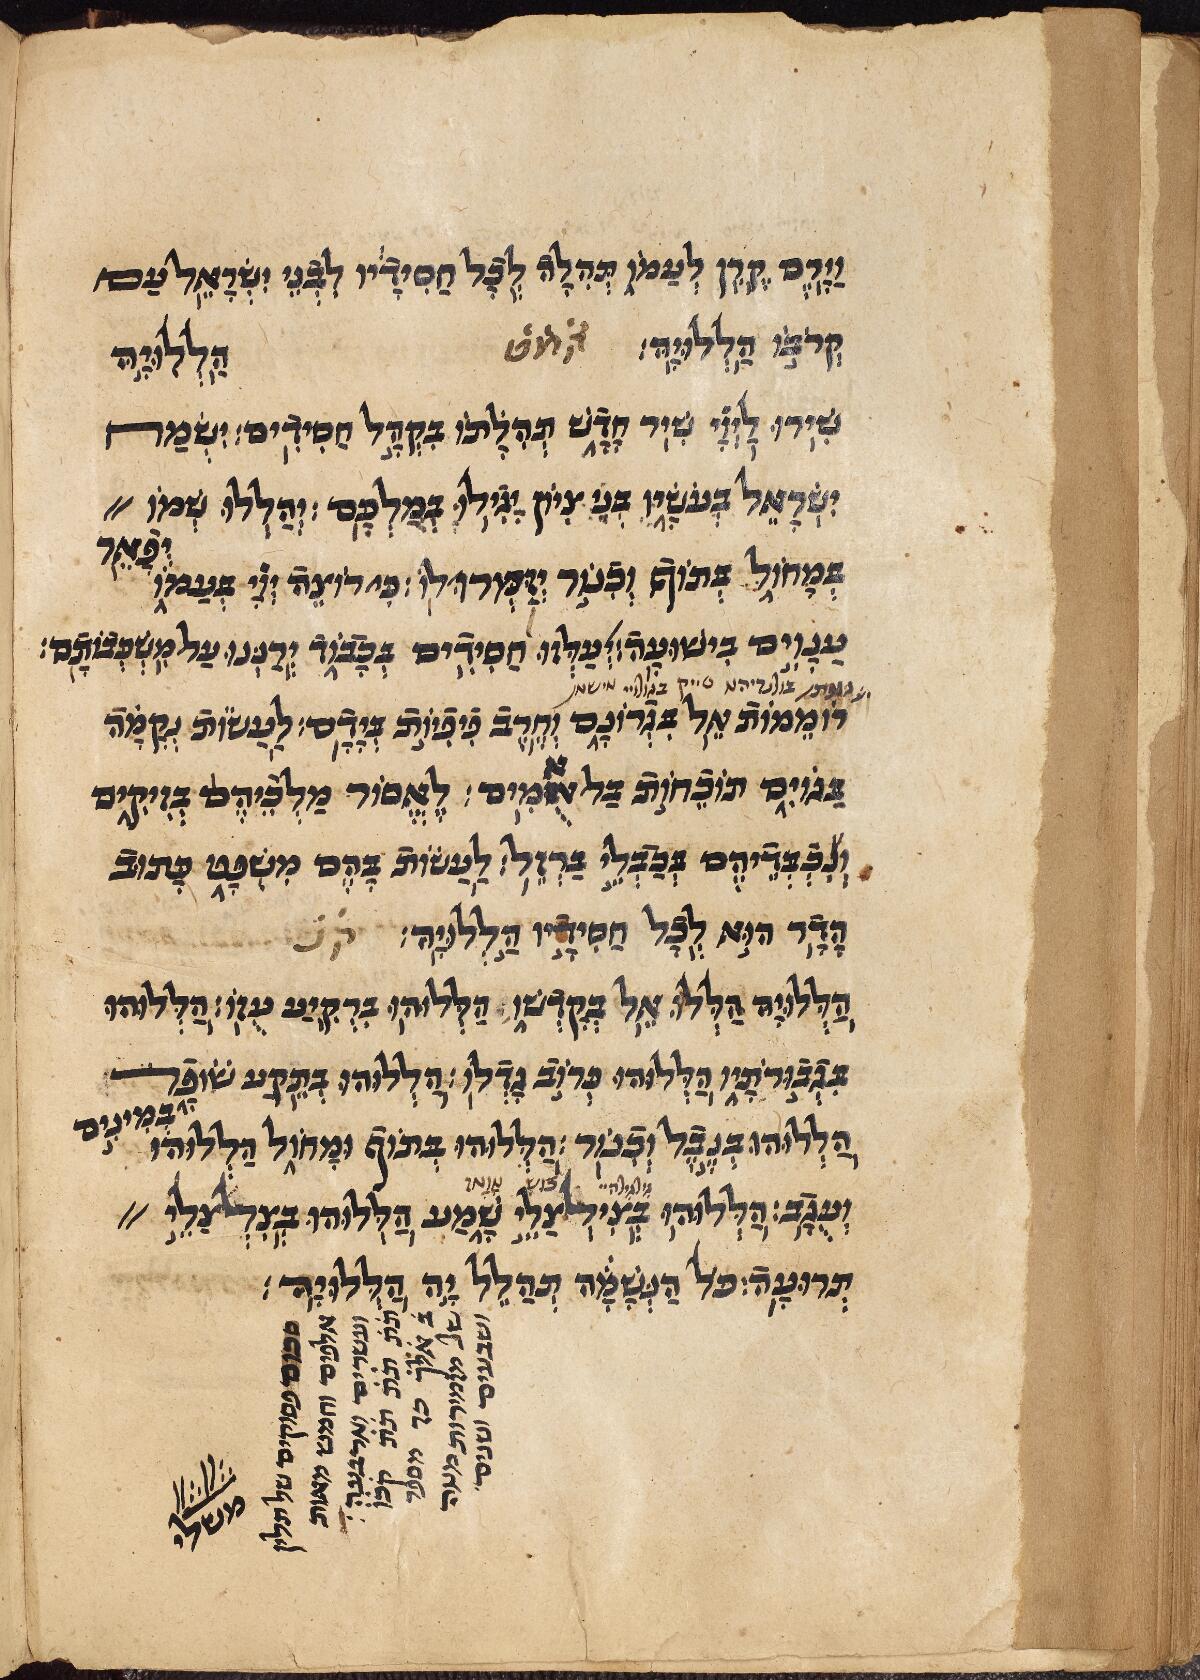 וַיָרֶם קֶרֶן לְעַמוֹ תְהִלָה לְכָל חַסִידָיו לִבְנֵי יִשְרָאֵל עַם
קְרֹבוֹ הַלְלוּיָה׃ קמט הַלְלוּיָה
שִירוּ לַיְיָ שִיר חָדָש תְהִלָתוֹ בִקְהָל חַסִידִים׃ יִשְמַח
יִשְרָאֵל בְעֹשָיו בְנֵי צִיוֹן יָגִילוּ בְמַלְכָם׃ יְהַלְלוּ שְמוֹ //
בְמָחוֹל בְתוֹף וְכִנוֹר יְזַמְרוּ לוֹ׃ כִי רוֹצֶה יְיָ בְעַמוֹ יְפָאֵר
עַנָוִים בִישוּעָה׃ יַעְלְזוּ חַסִידִים בְכָבוֹד יְרַנְנוּ עַל מִשְכְבוֹתָם׃
רוֹמֵמוֹת אֵל בִגְרוֹנָם וְחֶרֶב פִיפִיוֹת בְיָדָם׃ לַעֲשוֹת נְקָמָה
בַגוֹיִם תוֹכֵחוֹת בַל אומִים׃ לֶאֱסוֹר מַלְכֵיהֶם בְזִיקִים
וְנִכְבְדֵיהֶם בְכַבְלֵי בַרְזֶל׃ לַעֲשוֹת בָהֶם מִשְפָט כָתוּב
הָדָר הוּא לְכָל חַסִידָיו הַלְלוּיָה׃ קנ
הַלְלוּיָה הַלְלוּ אֵל בְקָדְשוֹ הַלְלוּהוּ בִרְקִיעַ עֻזוֹ׃ הַלְלוּהוּ
בִגְבוּרֹתָיו הַלְלוּהוּ כְרוֹב גָדְלוֹ׃ הַלְלוּהוּ בְתֵקַע שוֹפָר
הַלְלוּהוּ בְנֵבֶל וְכִנוֹר׃ הַלְלוּהוּ בְתוֹף וּמָחוֹל הַלְלוּהוּ בְמִינִים
וְעֻגָב׃ הַלְלוּהוּ בְצִילְצַלֵי שָמַע הַלְלוּהוּ בְצִלְצַלֵי //
תְרוּעָה׃ כל הַנְשָמָה תְהַלֵל יָה הַלְלוּיָה׃
סכום פסוקים של תלין
אלפים וחמש מאות
ועשרים וארבעה׃
תת תת תת קכז
כך מספר
של מזמירות מאה
ושבעים ושנים
משלי